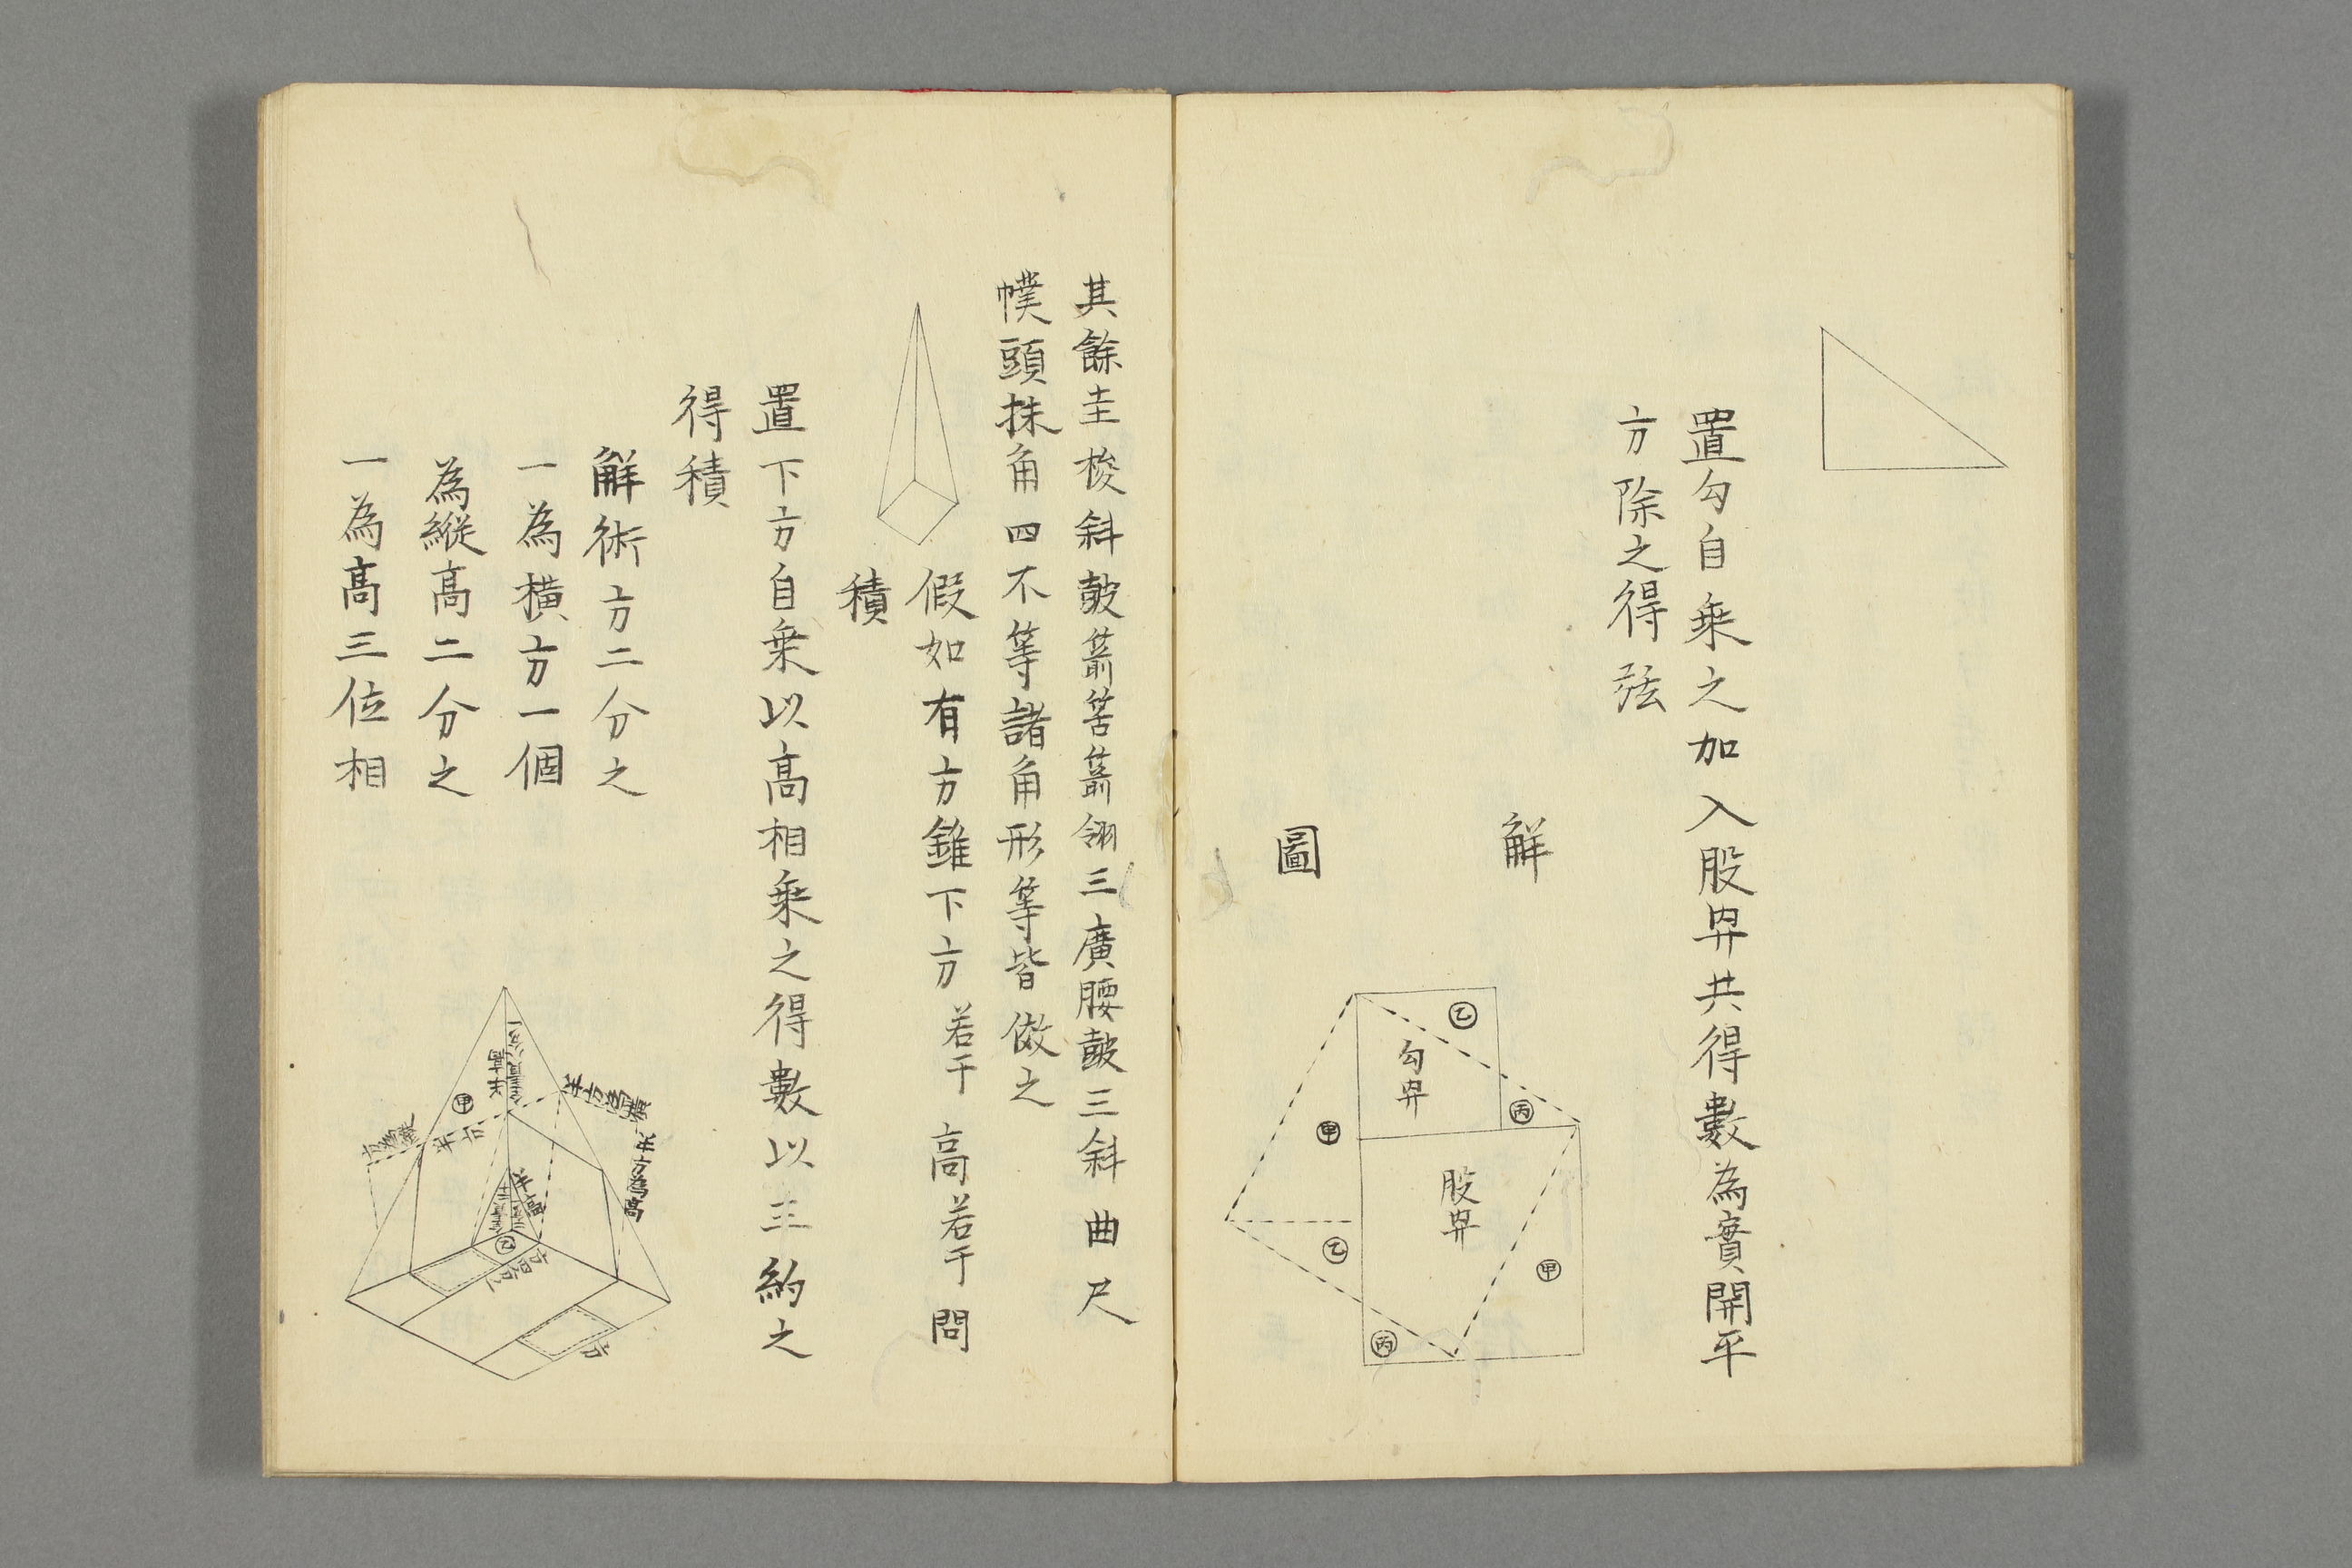 置勾自乗之加入股冪共得數為實開平
方除之得弦
解
圖
乙
勾冪
丙
甲
股冪
乙
甲
丙
其餘圭梭斜皷箭筈箭翎三廣腰皷三斜曲尺
幞頭抹角四不等諸角形等皆倣之
假如有方錐下方若干高若干問
積
置下方自乗以高相乗之得數以三約之
得積
解術方二分之
一為横方一個
為縦高二分之
一為高三位相
甲
半高
半方為横
半方為高
半方
半高
乙
方